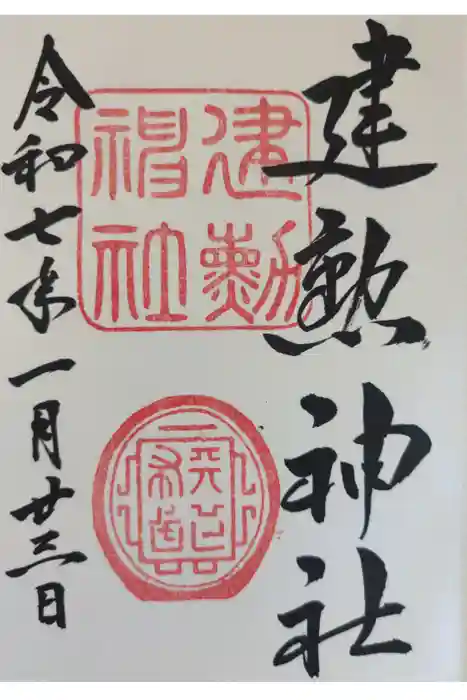 建勲神社
建勲
神社
天下布武
令和七年一月廿三日